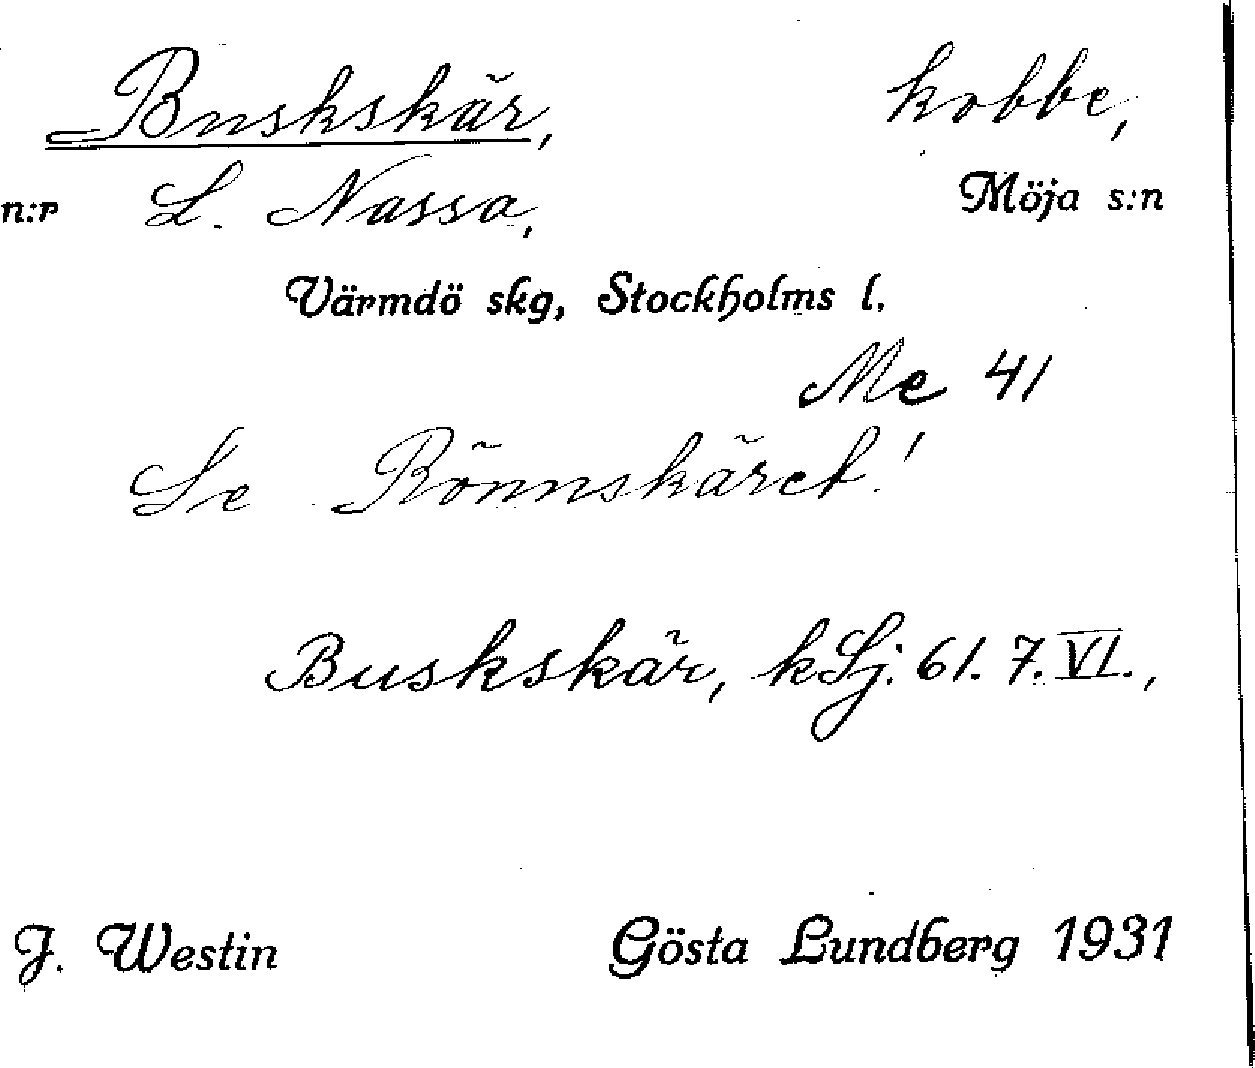 Buskskär, kobbe,
n:r L. Nassa, Möja s:n
Värmdö skg, Stockholms l.
Me 41
Se Rönnskäret!
Buskskär, kSj. 61. 7. VI.,
J. Westin Gösta Lundberg 1931